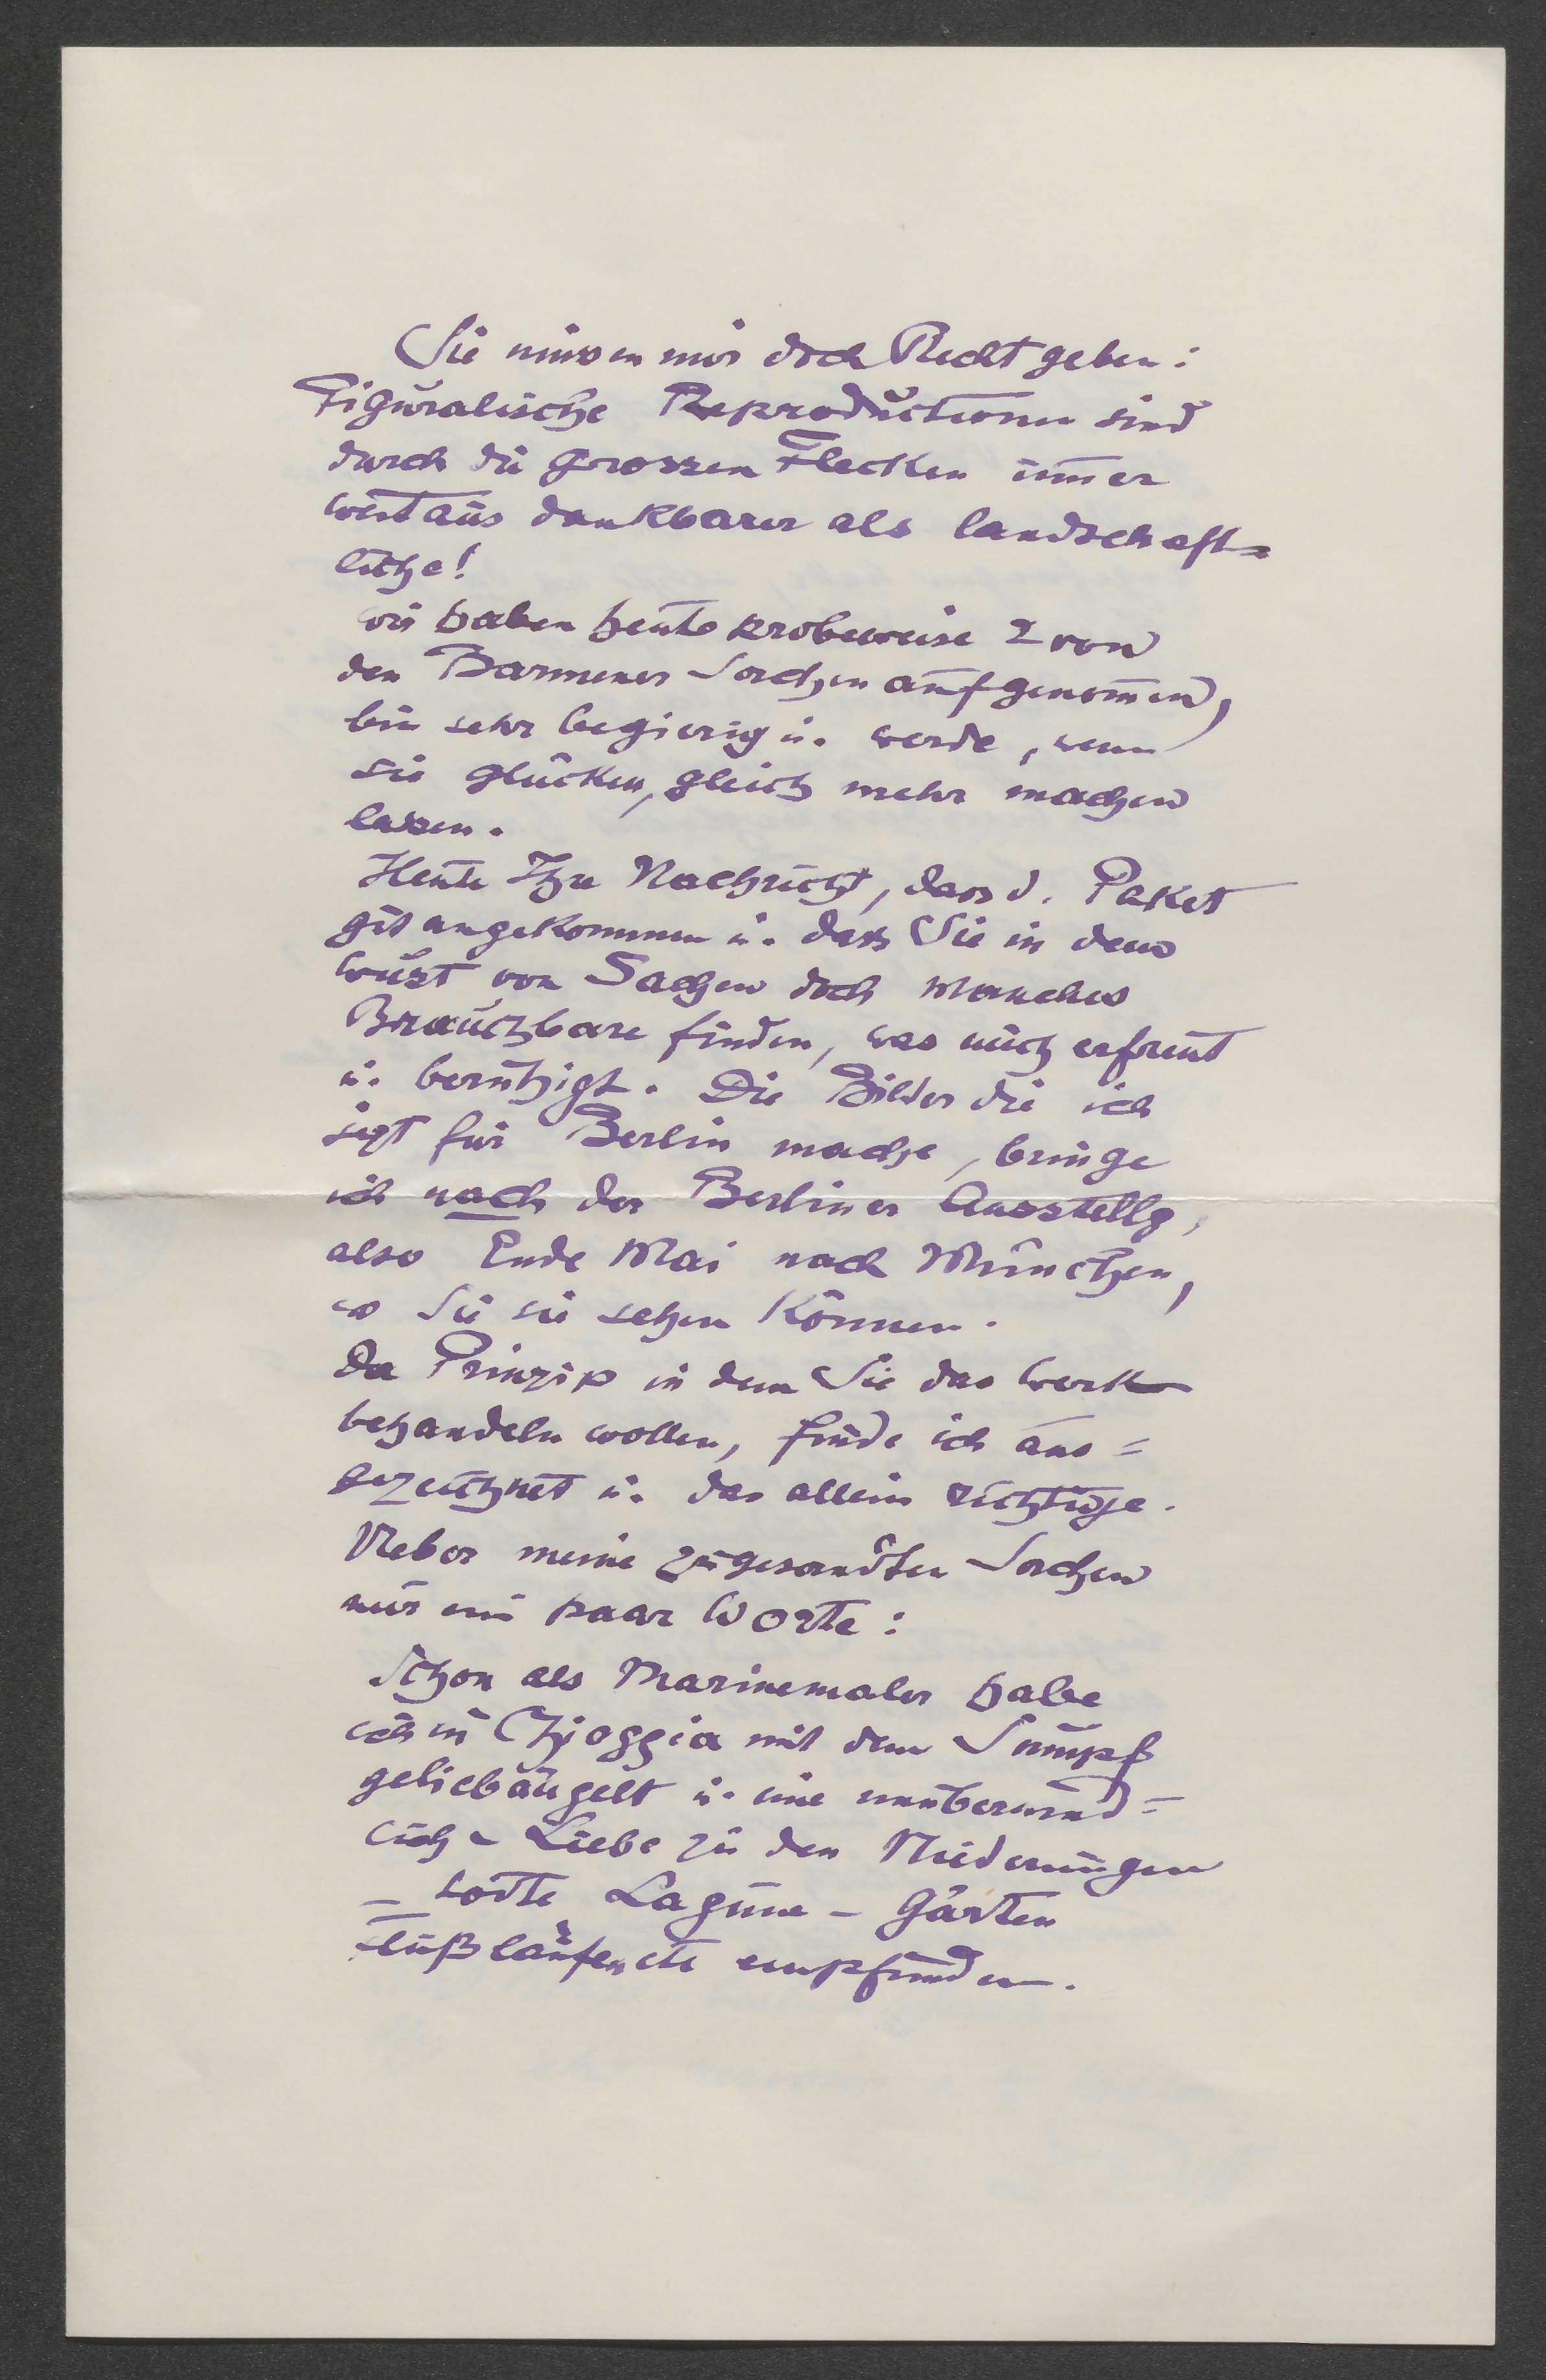 Sie müssen mir doch Recht geben:
Figuralische Reproductionen sind
durch die grossen Flecken im̅er
weitaus dankbarer als landschaft=
liche!
wir haben heute probeweise 2 von
den Barmener Sachen aufgenom̅en,
bin sehr begierig u. werde, wenn
sie glücken, gleich mehr machen
lassen.
Heute Ihre Nachricht, dass d. Paket
gut angekommen u. dass Sie in dem
Wust von Sachen doch manches
Brauchbare finden, was mich erfreut
u. beruhigt. Die Bilder die ich
jezt für Berlin mache, bringe
ich nach der Berliner Ausstellg,
also Ende Mai nach München,
wo Sie sie sehen können.
Da Prinzip in dem Sie das Werk
behandeln wollen, finde ich aus=
gezeichnet u. das allein richtige.
Ueber meine zugesandten Sachen
nur ein paar Worte:
Schon als Marinemaler habe
ich in Chjoggia mit dem Sumpf
geliebäugelt u. eine unüberwind=
liche Liebe zu den Niederungen
– todte Lagune – Gärten
Flußläufen etc empfunden.